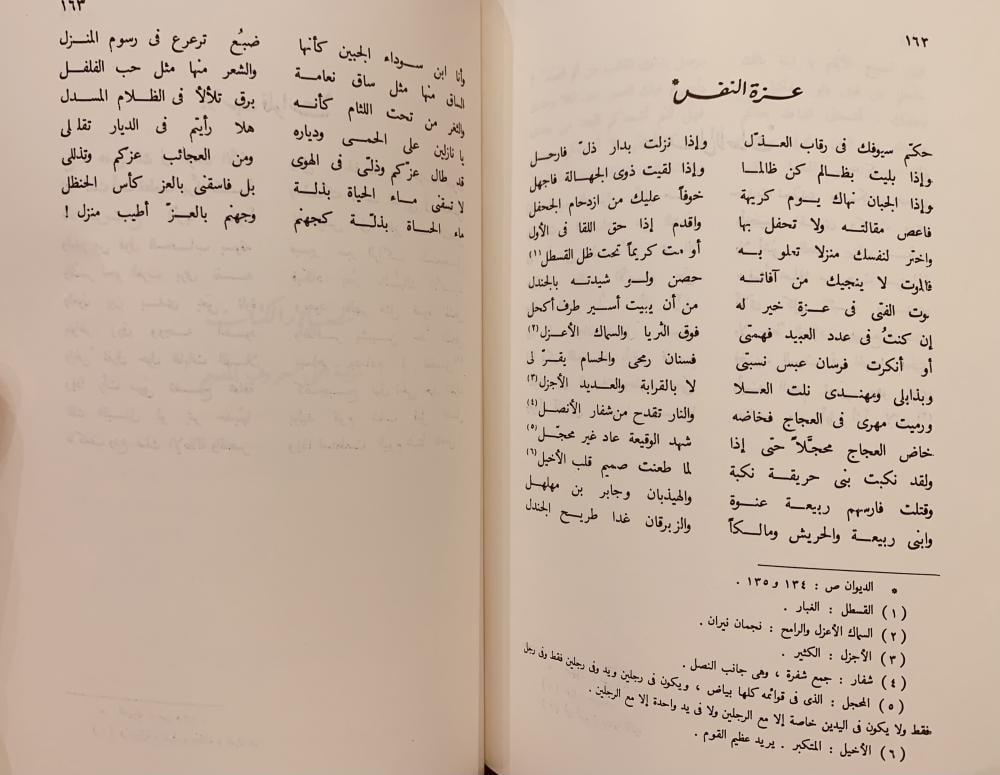 ١٦٢
عزة النفس *
حكّم سيوفك فى رقاب العذّل وإذا نزلت بدار ذلّ فارحل
وإذا بليت بظالم كن ظالما وإذا لقيت ذوى الجهالة فاجهل
وإذا الجبان نهاك يوم كريهة خوفاً عليك من ازدحام الجحفل
فاعص مقالته ولا تحفل بها واقدم إذا حق اللقا فى الأول
واختر لنفسك منزلا تعلو به أو مت كريماً تحت ظل القسطل (١)
فالموت لا ينجيك من آفاته حصن ولو شيدته بالجندل
موت الفتى فى عزة خير له من أن يبيت أسير طرف أكحل
إن كنتُ فى عدد العبيد فهمتى فوق الثريا والسماك الأعزل (٢)
أو أنكرت فرسان عبس نسبتى فسنان رمحى والحسام يقرّ لى
وبذابلى ومهندى نلت العلا لا بالقرابة والعديد الأجزل (٣)
ورميت مهرى فى العجاج فخاضه والنار تقدح من شفار الأنصل (٤)
خاض العجاج محجّلاً حتى إذا شهد الوقيعة عاد غير محجّل (٥)
ولقد نكبت بنى حريقة نكبة لما طعنت صميم قلب الأخيل (٦)
وقتلت فارسهم ربيعة عنوة والهيذبان وجابر بن مهلهل
وابنى ربيعة والحريش ومالكاً والزبرقان غدا طريح الجندل
* الديوان ص : ١٣٤ و ١٣٥ .
(١) القسطل : الغبار .
(٢) السماك الأعزل والرامح : نجمان نيران .
(٣) الأجزل : الكثير .
(٤) شفار : جمع شفرة ، وهى جانب النصل .
(٥) المحجل : الذى فى قوائمه كلها بياض ، ويكون فى رجلين ويد وفى رجلين فقط وفى رجل
فقط ولا يكون فى اليدين خاصة إلا مع الرجلين ولا فى يد واحدة إلا مع الرجلين .
(٦) الأخيل : المتكبر . يريد عظيم القوم .
١٦٣
وأنا ابن سوداء الجبين كأنها ضبُع ترعرع فى رسوم المنزل
الساق منها مثل ساق نعامة والشعر منها مثل حب الفلفل
والثغر من تحت اللثام كأنه برق تلألأ فى الظلام المسدل
يا نازلين على الحمى ودياره هلا رأيتم فى الديار تقلقلى
قد طال عزكم وذلّى فى الهوى ومن العجائب عزكم وتذللى
لا تسقنى ماء الحياة بذلة بل فاسقنى بالعز كأس الحنظل
ماء الحياة بذلّة كجهنم وجهنم بالعزّ أطيب منزل !